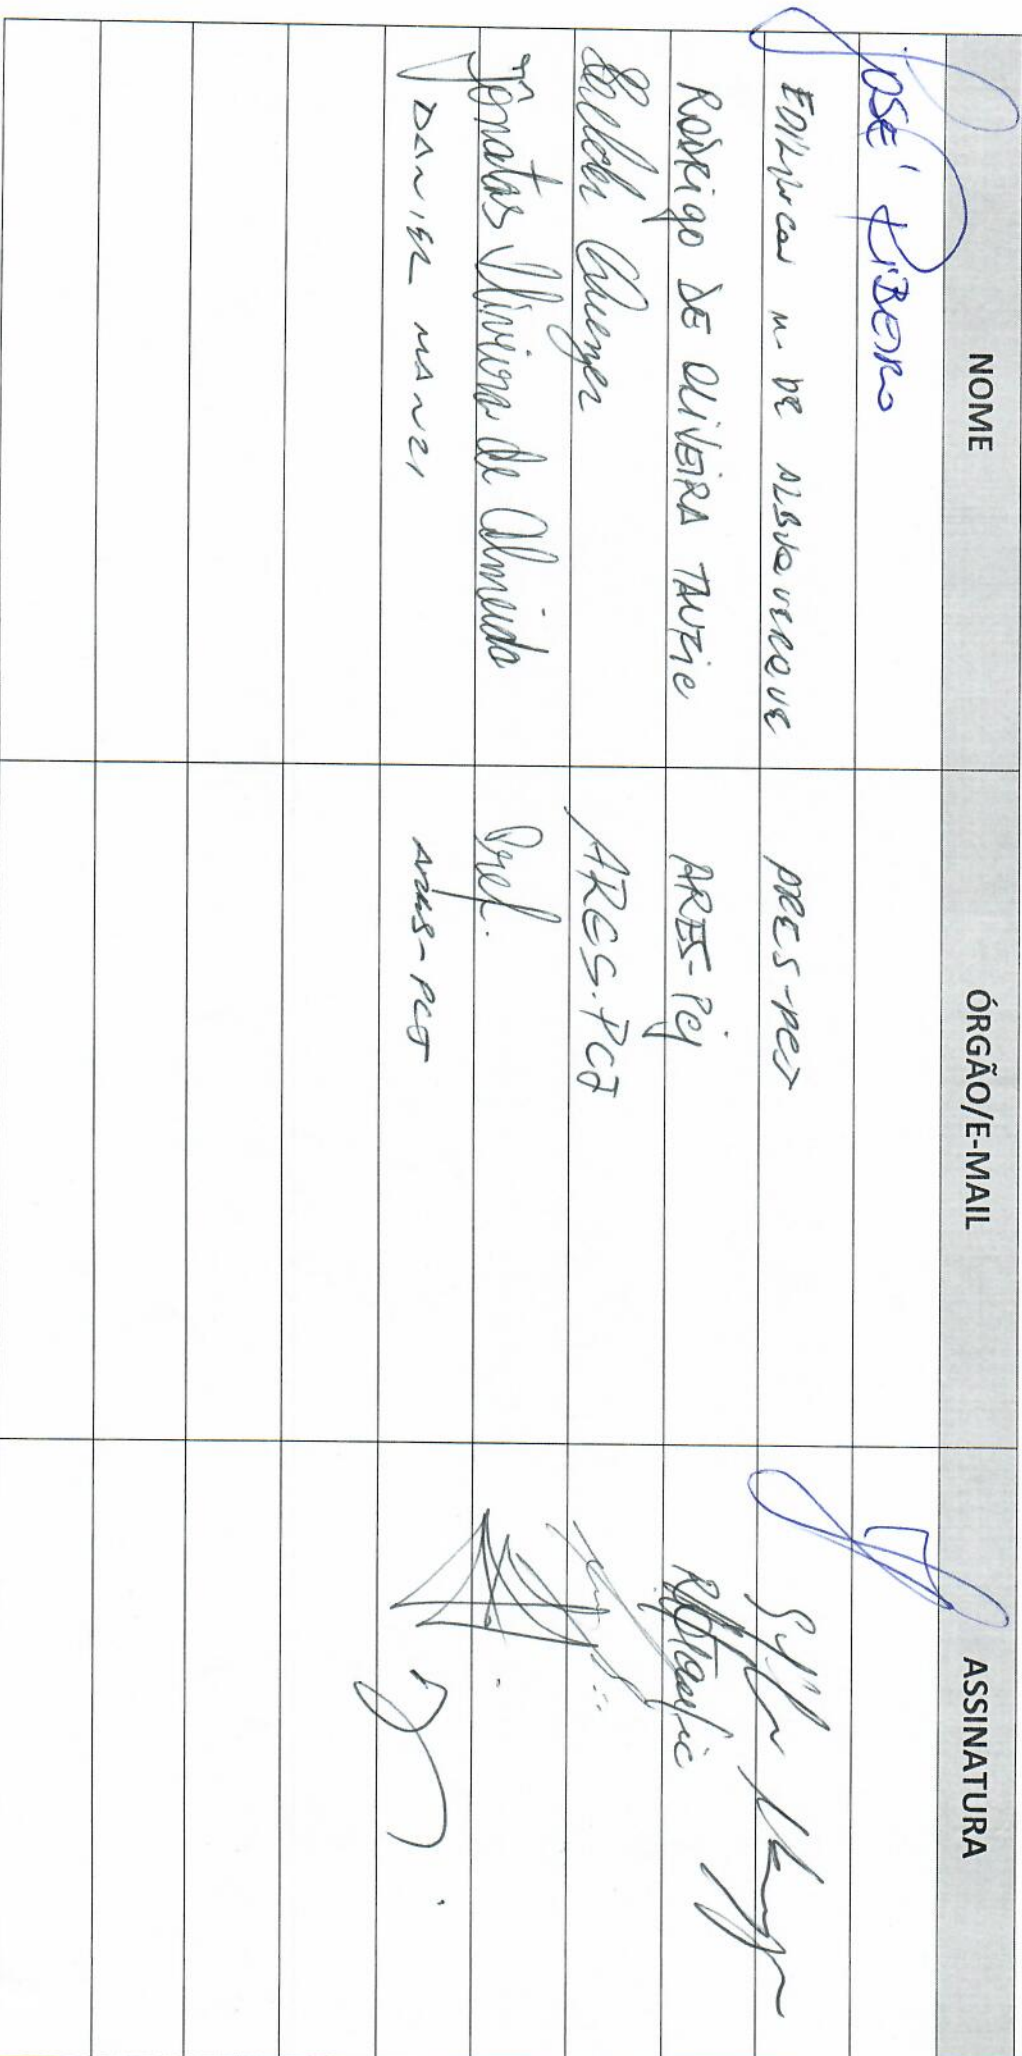 NOME ÓRGÃO/E-MAIL ASSINATURA
JOSÉ RIBEIRO
M. DE ALBUQUERQUE ARES-PCJ
RODRIGO DE OLIVEIRA TAUFIC ARES-PCJ RTaufic
ARES-PCJ
Jônatas Oliveira de Almeida Pref.
DANIEL MANZI ARES-PCJ